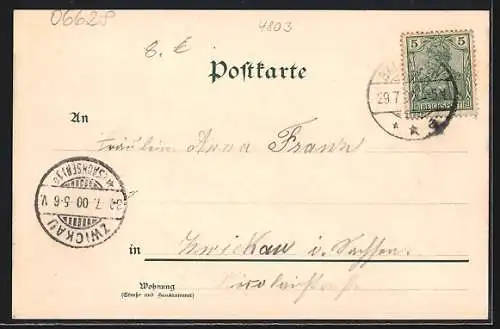 06628
4803
8. €
5 5
REICHSPOST
29.7
Postkarte
An
Fräulein Anna Franz
ZWICKAU (SACHSEN)
7. 00. 5-6 V.
in Zwickau i. Sachsen
Wohnung
(Straße und Hausnummer)
Nicolaistraße